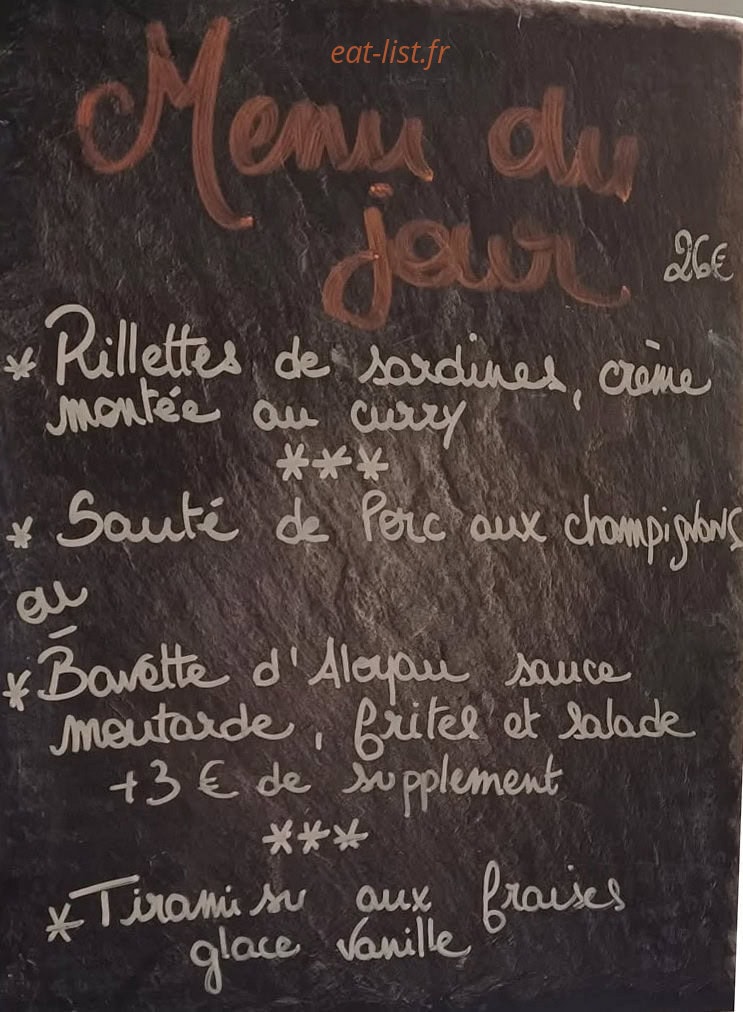 eat-list.fr
Menu du
jour
26€
* Rillettes de sardines, crème
montée au curry
***
* Sauté de Porc aux champignons
ou
* Bavette d'Aloyau sauce
moutarde, frites et salade
+3 € de supplement
***
* Tiramisu aux fraises
glace vanille